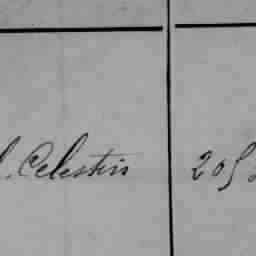 Celestin 205